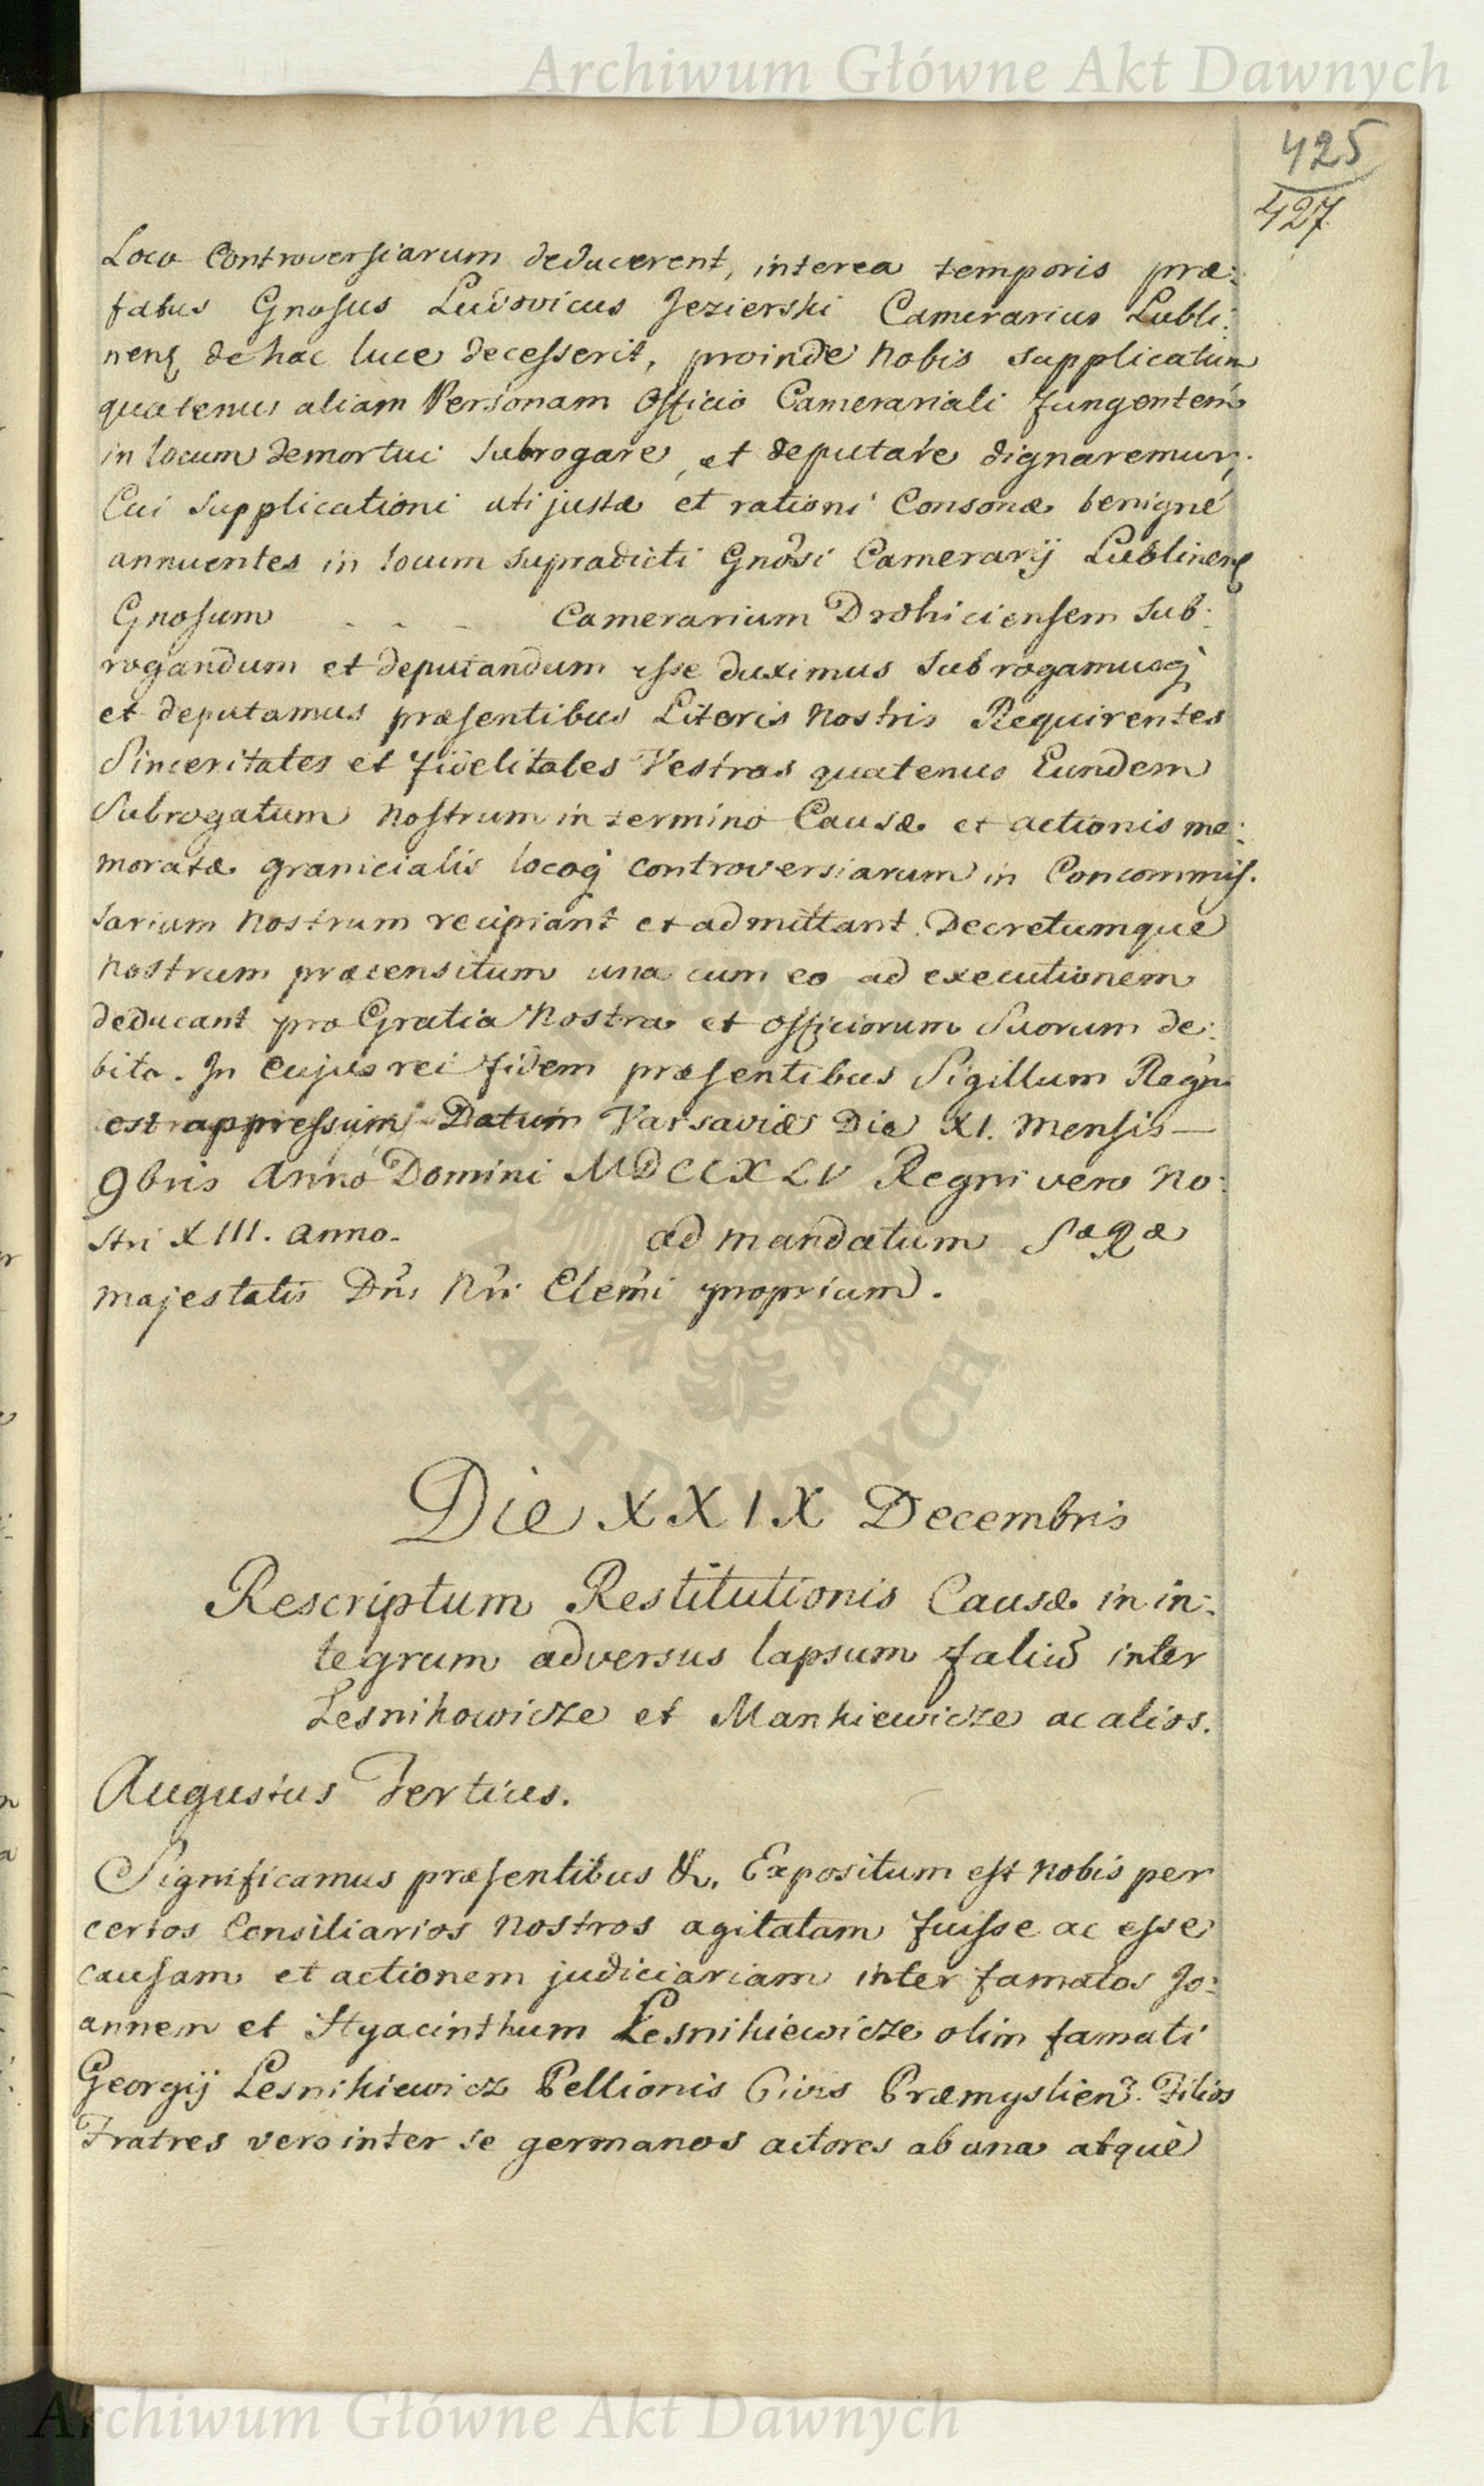 Archiwum Główne Akt Dawnych
425
427.
Loco Controversiarum deducerent, interea temporis præ:
fatus Gnosus Ludovicus Jezierski Camerarius Lubli:
nenſ de hac luce decesserit, proinde nobis supplicatum
quatenus aliam Personam Officio Camerariali fungentem
in locum demortui subrogare, et deputare dignaremur,
Cui supplicationi uti justæ et rationi Consonæ benigné
annuentes in locum supradicti Gnosi Camerarij Lublinenſ
Gnosum - - - Camerarium Drohiciensem sub:
rogandum et deputandum esse duximus subrogamusq̃
et deputamus præsentibus Literis nostris Requirentes
Sinceritates et fidelitates Vestras quatenus Eundem
Subrogatum nostrum in termino Causæ et actionis me:
moratæ granicialis locoq̃ controversiarum in Concommis:
sarium nostrum recipiant et admittant Decretumque
nostrum præcensitum una cum eo ad executionem
deducant pro Gratia nostra et officiorum Suorum de:
bito. In cujus rei fidem præsentibus Sigillum Regni
est appressum Datum Varsaviæ Die XI. mensis —
9bris Anno Domini MDCCXLV Regni vero no:
stri XIII. anno.
ad mandatum Sæ Ræ
majestatis Dni Nri Clemi proprium.
AKT DAWNYCH
Die XXIX Decembris
Rescriptum Restitutionis Causæ in in:
tegrum adversus lapsum faliũ inter
Lesnikowicze et Mankiewicze ac alios.
Augustus Tertius.
Significamus præsentibus &. Expositum est nobis per
certos Consiliarios nostros agitatam fuisse ac esse
causam et actionem judiciariam inter famatos Jo:
annem et Hyacinthum Lesnikiewicze olim famati
Georgij Lesnikiewicz Pellionis Civis Præmyslien. Filios
Fratres vero inter se germanos actores ab una atquè
Archiwum Główne Akt Dawnych